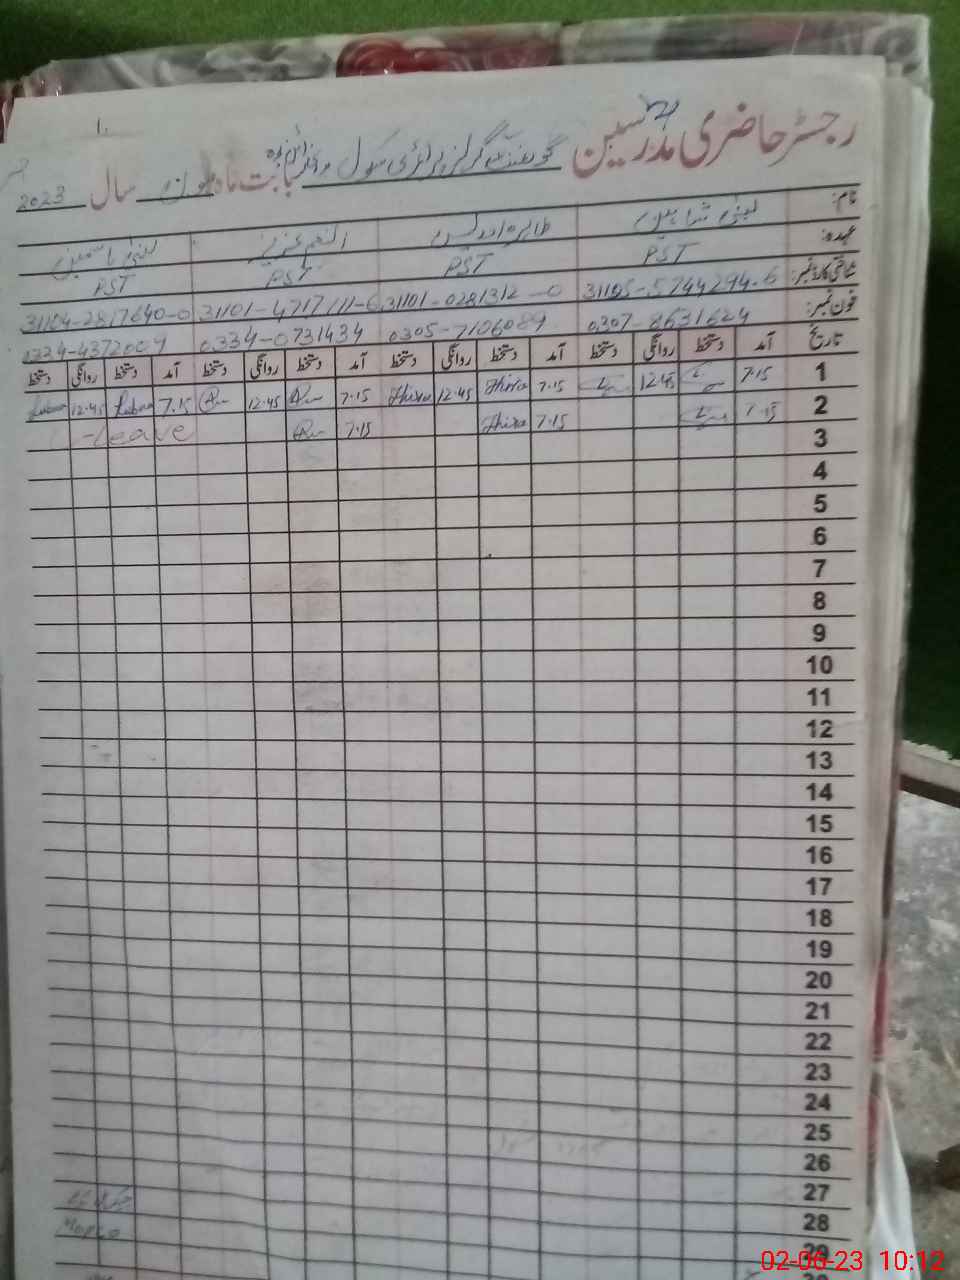 رجسٹر حاضری مدرسین گورنمنٹ گرلز پرائمری سکول بابت ماہ جون سال 2023
نام: لبنیٰ شاہین طاہرہ ادریس انعم عزیز لبنیٰ یاسمین
عہدہ: PST PST PST PST
شناختی کارڈ نمبر: 31105-5744294-6 31101-0281312-0 31101-4717111-6 31104-2817640-0
فون نمبر: 0307-8631624 0305-7106089 0334-0731434 0334-4372009
تاریخ آمد دستخط روانگی دستخط آمد دستخط روانگی دستخط آمد دستخط روانگی دستخط آمد دستخط روانگی دستخط
1 7.15 12.45 7.15 12.45 7.15 12.45 7.15 Lubna 12.45 Lubna
2 7.15 7.15 7.15 Leave
3
4
5
6
7
8
9
10
11
12
13
14
15
16
17
18
19
20
21
22
23
24
25
26
27
28
29
02-06-23 10:12